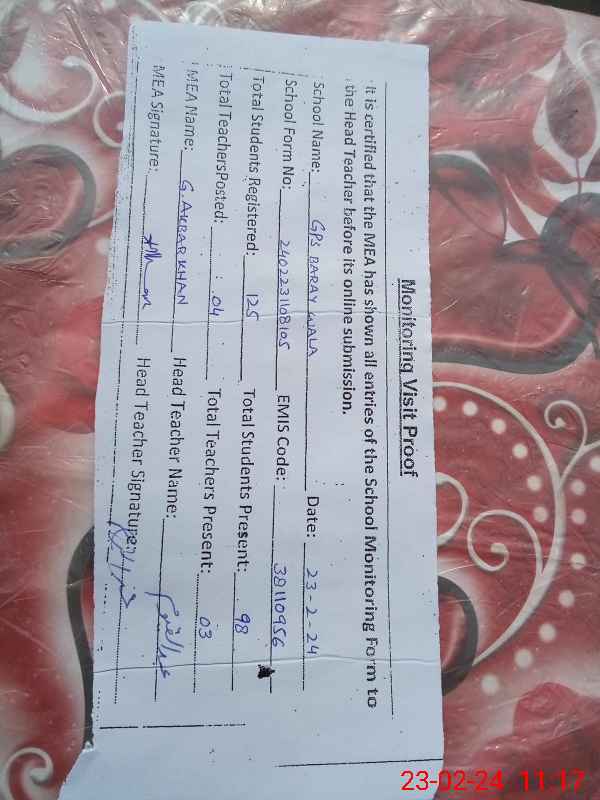 Monitoring Visit Proof
It is certified that the MEA has shown all entries of the School Monitoring Form to
the Head Teacher before its online submission.
School Name: GPS BARAY WALA Date: 23-2-24
School Form No: 2402231108105 EMIS Code: 38110956
Total Students Registered: 125 Total Students Present: 98
Total TeachersPosted: 04 Total Teachers Present: 03
MEA Name: G. AKBAR KHAN Head Teacher Name:
MEA Signature: Head Teacher Signature:
23-02-24 11:17